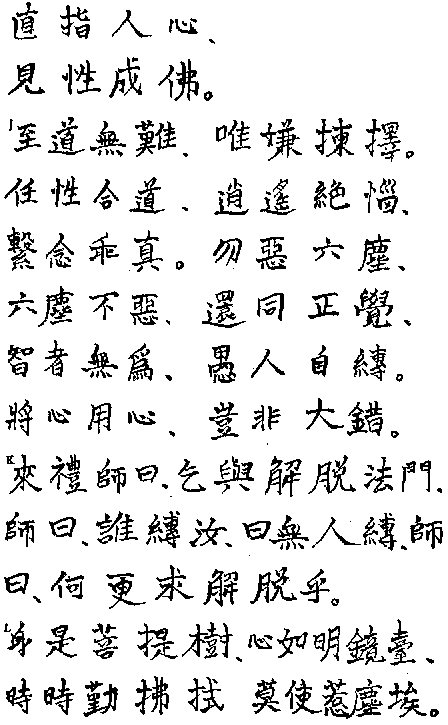 直指人心、
見性成佛。
「至道無難、唯嫌揀擇。
任性合道、逍遙絕惱、
繫念乖真。勿惡六塵、
六塵不惡、還同正覺、
智者無爲、愚人自縛。
將心用心、豈非大錯。
「來禮師曰、乞與解脱法門、
師曰、誰縛汝、曰無人縛、師
曰、何更求解脱乎。
「身是菩提樹、心如明鏡臺、
時時勤拂拭 莫使惹塵埃。